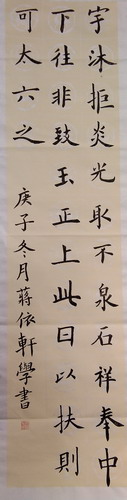 宇沐拒炎光取不泉石祥奉中
下往非致玉正上此日以扶則
可太六之
庚子冬月蔣依軒學書